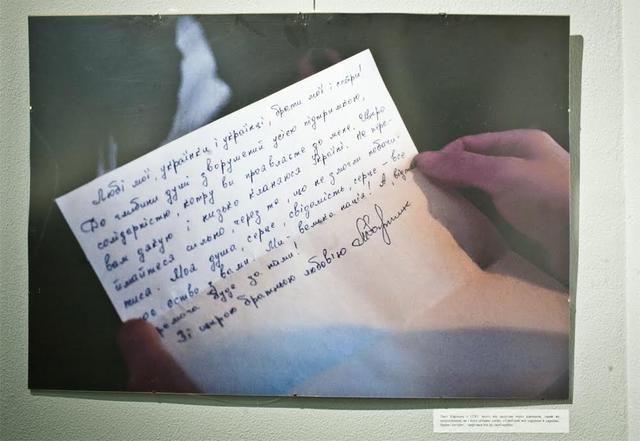 Любі мої, українки і українці, брати мої і сестри!
До глибини душі зворушений усією підтримкою,
солідарністю, котру ви проявляєте до мене. Щиро
вам дякую і низько кланяюся Україні. Не пере-
ймайтеся сильно, через те, що не змогли побачи-
тися. Моя душа, серце, свідомість, серце – все
моє єство з вами. Ми, велика нація! А, відтак
ремога буде за нами!
Зі щирою братньою любов'ю